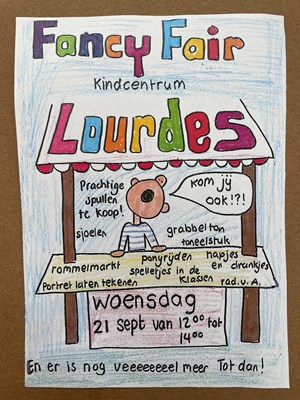 Fancy Fair
Kindcentrum
Lourdes
Prachtige
spullen
te koop!
kom jij
ook!?!
sjoelen
grabbelton
toneelstuk
rommelmarkt
ponyrijden
hapjes
en drankjes
spelletjes in de
klassen
Portret laten tekenen
rad.v.A.
woensdag
21 sept van 12⁰⁰ tot
14⁰⁰
En er is nog veeeeeeeel meer Tot dan!